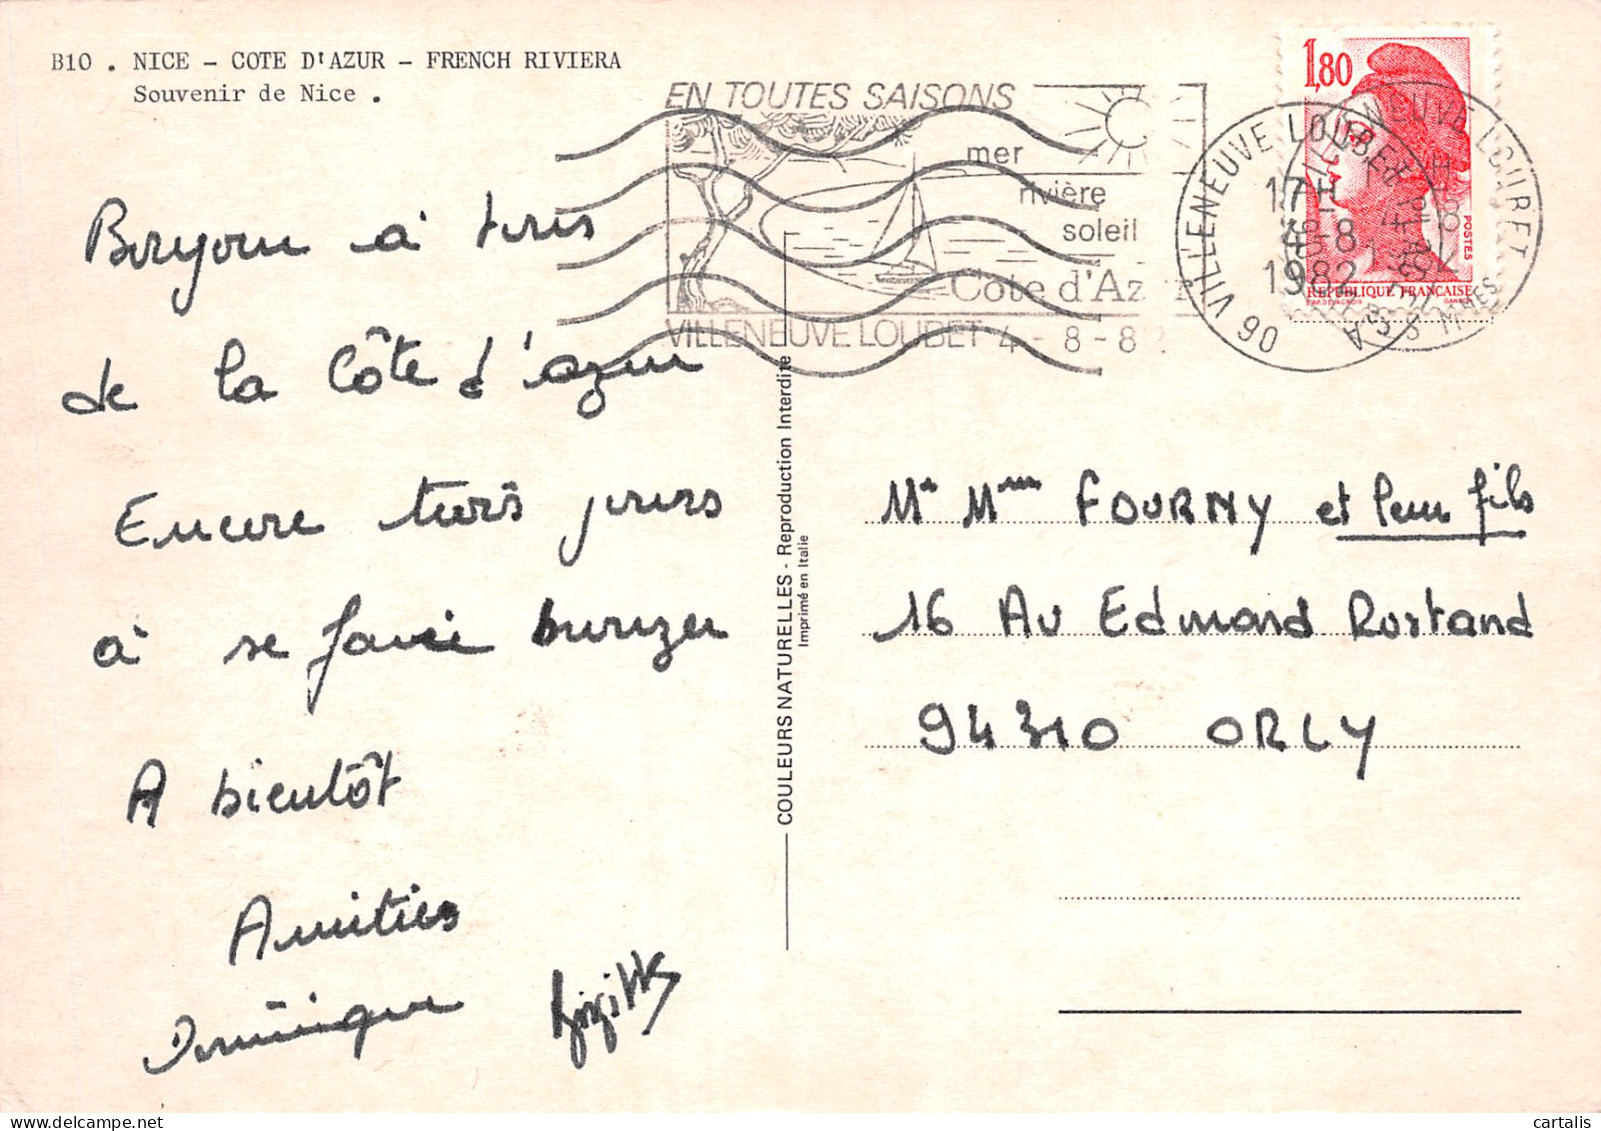 B10 . NICE - COTE D'AZUR - FRENCH RIVIERA
Souvenir de Nice .
EN TOUTES SAISONS
mer
rivière
soleil
Cote d'Azur
VILLENEUVE LOUBET 4-8-82
1,80
POSTES
RÉPUBLIQUE FRANÇAISE
06 VILLENEUVE LOUBET
17H
4-8
1982
ALPES MMES
Bonjour à tous
de la Côte d'azur
Encore trois jours
à se faire bronzer
A bientôt
Amitiés
Dominique Brigitte
COULEURS NATURELLES - Reproduction Interdite
Imprimé en Italie
Mr Mme FOURNY et leur fils
16 Av Edmond Rostand
94310 ORLY
cartalis